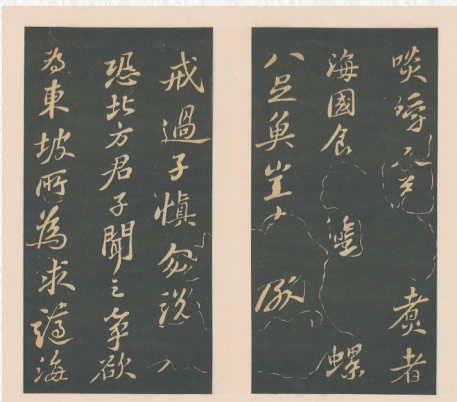 啖嚼又 煮者
海國食 蟹 螺
八足魚豈
戒過子慎勿說
恐北方君子聞之爭欲
為東坡所為求謫海